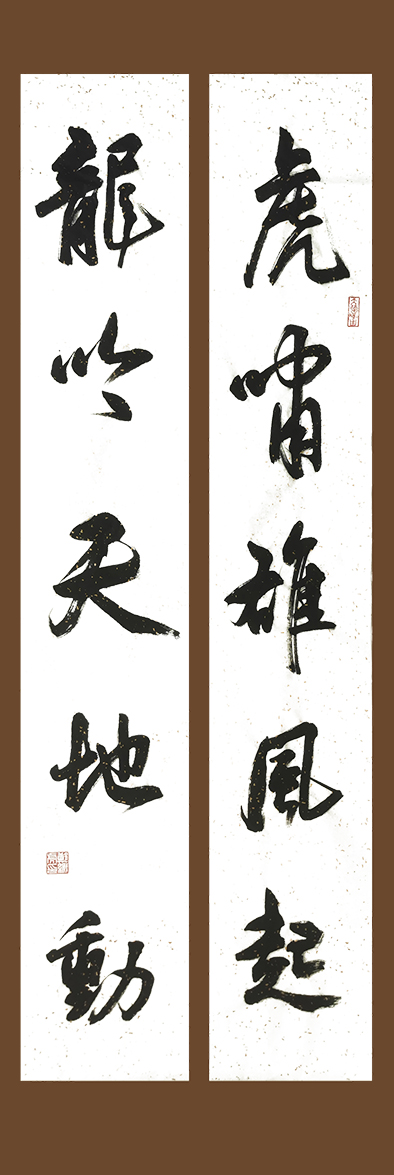 虎嘯雄風起
龍吟天地動